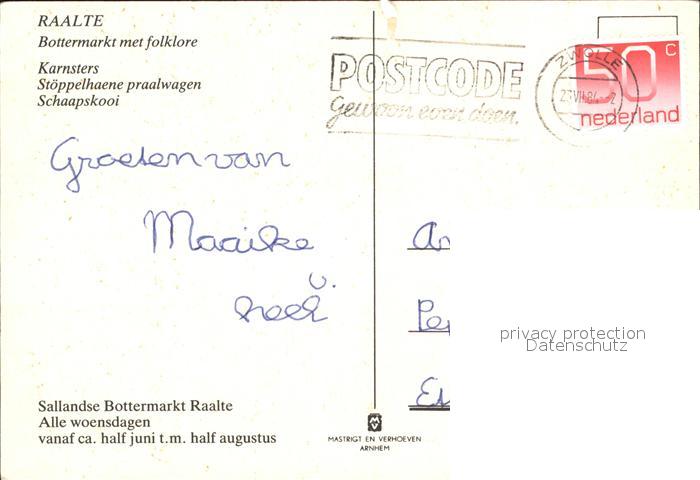 RAALTE
Bottermarkt met folklore
Karnsters
Stöppelhaene praalwagen
Schaapskooi
POSTCODE
Gewoon even doen.
ZWOLLE
50 C
nederland
Groeten van
Maaike
v.
privacy protection
Datenschutz
Sallandse Bottermarkt Raalte
Alle woensdagen
vanaf ca. half juni t.m. half augustus
MASTRIGT EN VERHOEVEN
ARNHEM